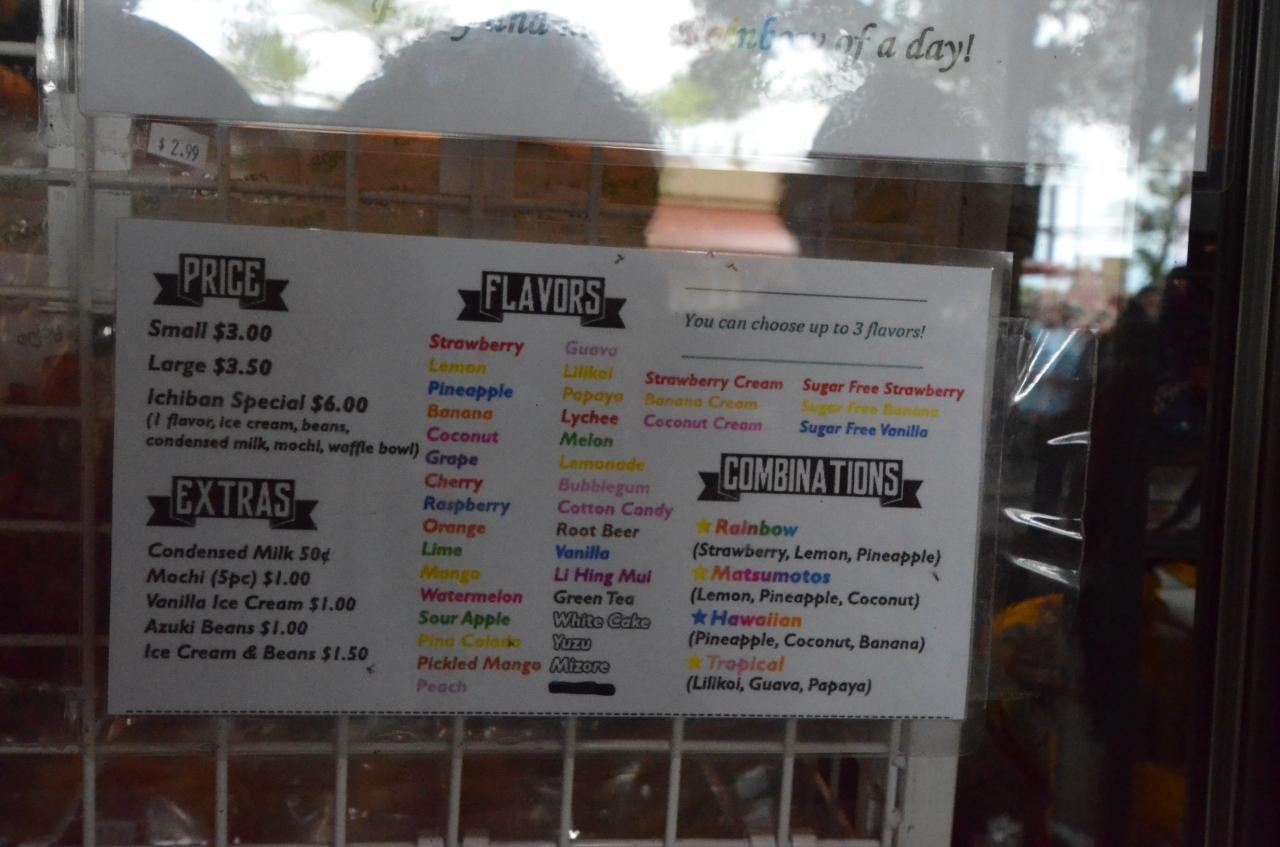 Rainbow of a day!
$ 2.99
PRICE
Small $3.00
Large $3.50
Ichiban Special $6.00
(1 flavor, ice cream, beans,
condensed milk, mochi, waffle bowl)
EXTRAS
Condensed Milk 50¢
Mochi (5pc) $1.00
Vanilla Ice Cream $1.00
Azuki Beans $1.00
Ice Cream & Beans $1.50
FLAVORS
Strawberry
Lemon
Pineapple
Banana
Coconut
Grape
Cherry
Raspberry
Orange
Lime
Mango
Watermelon
Sour Apple
Pina Colada
Pickled Mango
Peach
Guava
Lilikoi
Papaya
Lychee
Melon
Lemonade
Bubblegum
Cotton Candy
Root Beer
Vanilla
Li Hing Mui
Green Tea
White Cake
Yuzu
Mizore
You can choose up to 3 flavors!
Strawberry Cream
Banana Cream
Coconut Cream
Sugar Free Strawberry
Sugar Free Banana
Sugar Free Vanilla
COMBINATIONS
Rainbow
(Strawberry, Lemon, Pineapple)
Matsumotos
(Lemon, Pineapple, Coconut)
Hawaiian
(Pineapple, Coconut, Banana)
Tropical
(Lilikoi, Guava, Papaya)